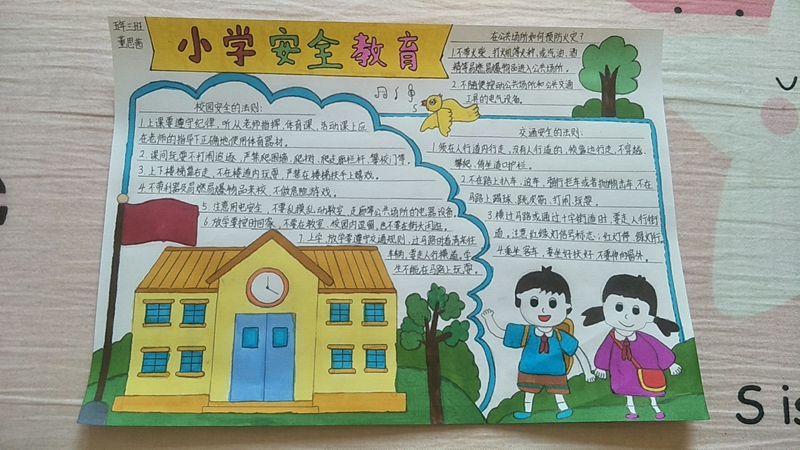 五年三班
董思茜
小学安全教育
校园安全的法则:
1.上课要遵守纪律,听从老师指挥,体育课、活动课上应
在老师的指导下正确地使用体育器材。
2.课间玩耍不打闹追逐,严禁爬围墙,爬树,爬走廊栏杆、攀校门等。
3.上下楼梯靠右走,不在楼道内玩耍,严禁在楼梯扶手上嬉戏。
4.不带利器及易燃易爆物品来校,不做危险游戏。
5.注意用电安全,不要乱摸乱动教室、走廊等公共场所的电器设备。
6.放学要按时回家,不要在教室、校园内逗留,也不要在街上闲逛。
7.上学、放学要遵守交通规则,过马路时看清来往
车辆,要走人行横道。学
生不能在马路上玩耍。
在公共场所如何预防火灾?
1.不带火柴、打火机等火种,或气油、酒
精等易燃易爆物品进入公共场所。
2.不随便搬动公共场所和公共交通
工具的电气设备。
交通安全的法则:
1.须在人行道内行走,没有人行道的,须靠边行走,不穿越、
攀爬、倚坐道口护栏。
2.不在路上扒车、追车、强行拦车或者抛物击车,不在
马路上踢球、跳皮筋、打闹、玩耍。
3.横过马路或通过十字街道时,要走人行街
道,注意红绿灯信号标志:红灯停,绿灯行。
4.乘坐客车,要坐好扶好,不要伸向窗外。
S is